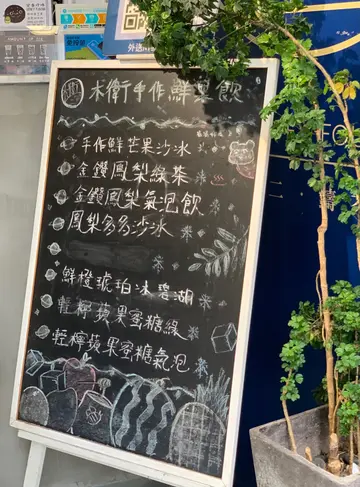 木衛手作鮮製飲
手作鮮芒果沙冰
金鑽鳳梨綠茶
金鑽鳳梨氣泡飲
鳳梨多多沙冰
鮮橙琥珀冰碧湖
輕檸蘋果蜜糖綠
輕檸蘋果蜜糖氣泡